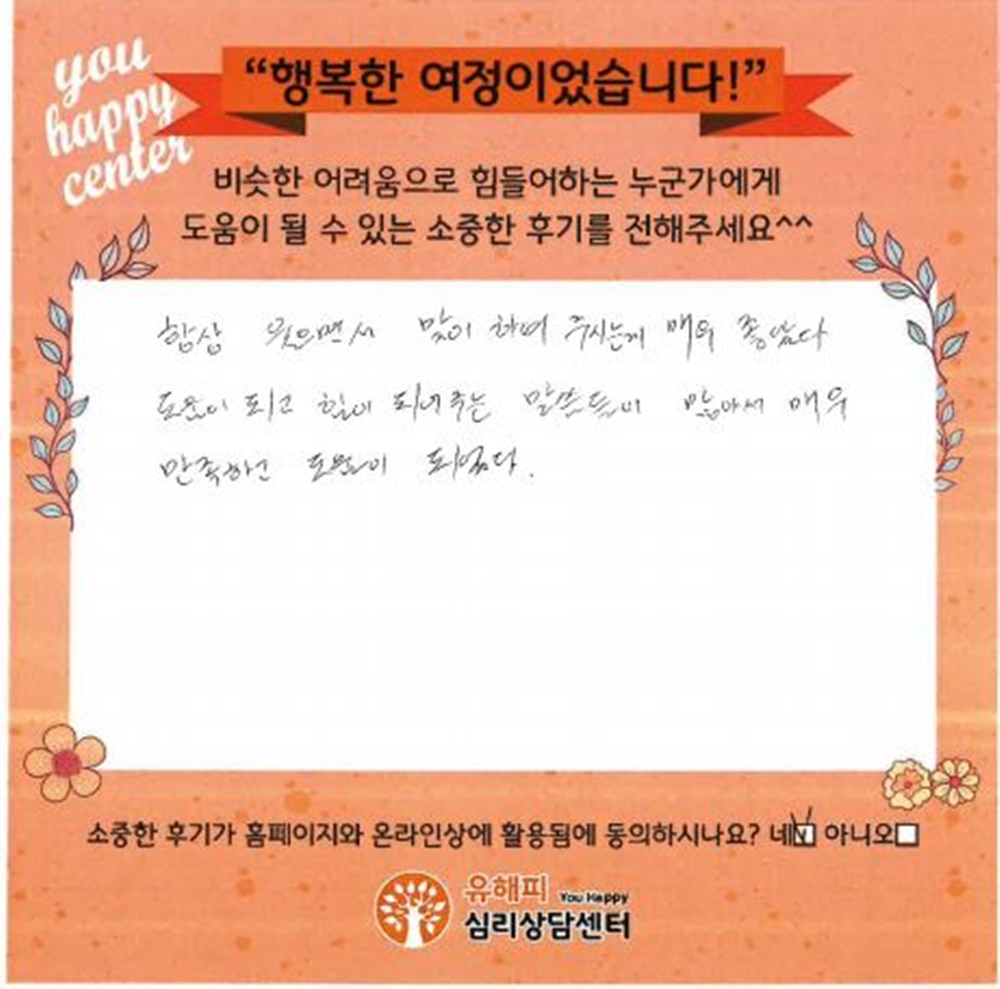 you
happy
center
“행복한 여정이었습니다!”
비슷한 어려움으로 힘들어하는 누군가에게
도움이 될 수 있는 소중한 후기를 전해주세요^^
항상 웃으면서 맞이 하며 주시는게 매우 좋았다
도움이 되고 힘이 되어주는 말씀들이 많아서 매우
만족하고 도움이 되었다.
소중한 후기가 홈페이지와 온라인상에 활용됨에 동의하시나요? 네☑ 아니오☐
유해피 You Happy
심리상담센터